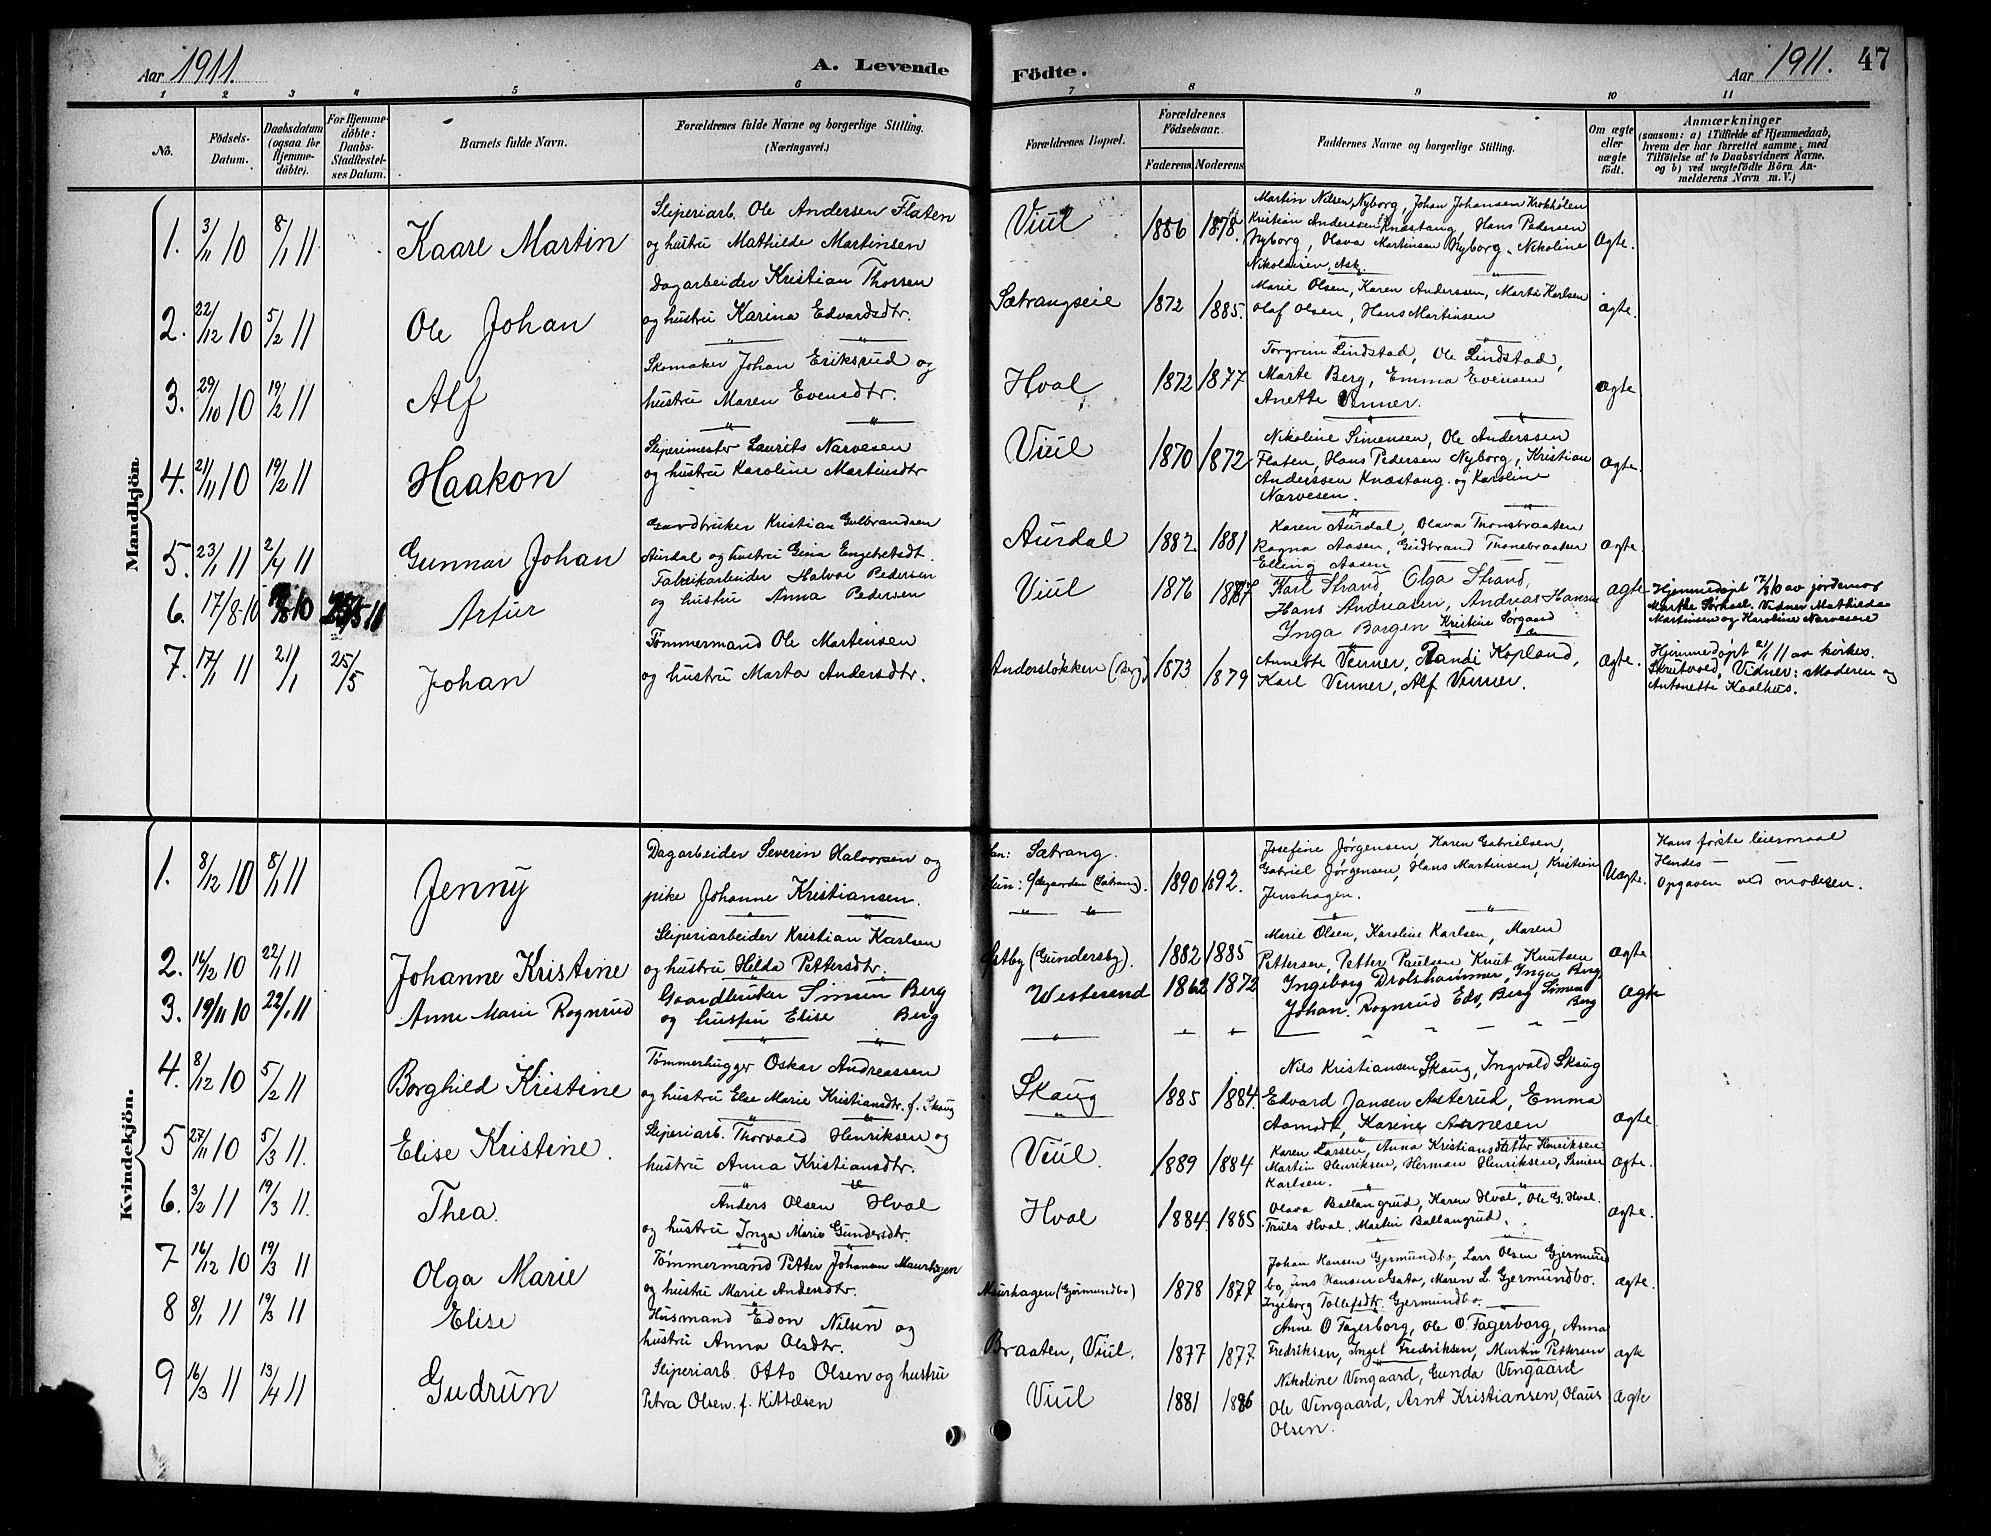 Aar 1911.
A. Levende
Födte.
Aar 1911.
47
1 2 3 4 5 6 7 8 9 10 11
No.
Födsels-
Datum.
Daabsdatum
(ogsaa for
Hjemme-
döbte).
For Hjemme-
döbte:
Daabs-
Stadfæstel-
ses Datum.
Barnets fulde Navn.
Forældrenes fulde Navne og borgerlige Stilling.
(Næringsvei.)
Forældrenes Bopæl.
Forældrenes
Födselsaar.
Faderens. Moderens.
Faddernes Navne og borgerlige Stilling.
Om ægte
eller
uægte
födt.
Anmærkninger
(saasom: a) i Tilfælde af Hjemmedaab,
hvem der har forrettet samme, med
Tilföielse af to Daabsvidners Navne,
og b) ved uægtefödte Börn An-
melderens Navn m. V.)
Mandkjön
1. 3/11 10 8/1 11 Kaare Martin
Sliperiarb. Ole Andersen Flaten
og hustru Mathilde Martinsen
Viul 1886 1878.
Martin Nilsen Nyborg, Johan Johansen Krokhølen
Kristian Anderssen Knæstang, Hans Pedersen
Nyborg, Olava Martinsen Nyborg. Nikoline
Nikolaisen, Ask.
Ægte.
2. 22/12 10 5/2 11 Ole Johan
Dagarbeider Kristian Thorsen
og hustru Karina Edvardsdtr.
Sætrangseie 1872 1885.
Marie Olsen, Karen Anderssen, Marta Karlsen
Olaf Olsen, Hans Martinsen
ægte.
3. 29/10 10 19/2 11 Alf
Skomaker Johan Eriksrud og
hustru Maren Evensdtr.
Hval 1872 1877
Torgrim Lindstad, Ole Lindstad,
Marte Berg, Emma Evensen
Anette Venner.
ægte
4. 21/11 10 19/2 11 Haakon
Sliperimester Laurits Narvesen
og hustru Karoline Martinsdtr
Viul 1870 1872
Nikoline Simensen, Ole Anderssen
Flaten, Hans Pedersen Nyborg, Kristian
Anderssen Knæstang. og Karoline
Narvesen.
ægte.
5. 23/1 11 2/4 11 Gunnar Johan
Gaardbruker Kristian Gulbrandsen
Aurdal og hustru Gina Engebretsdt.
Aurdal 1882. 1881
Karen Aurdal, Olava Thonsbraaten
Ragna Aasen, Gudbrand Thonsbraaten
Elling Aasen
ægte.
6. 17/8-10 Artur
Fabrikarbeider Halvor Pedersen
og hustru Anna Pedersen
Viul 1876
Karl Strand, Olga Strand,
Hans Andreasen, Andreas Hansen
Inga Borgen Kristine Sørgaard
ægte
Hjemmedøpt 17/8 10 av jordemor
Marthe Sørhsel. Vidner Mathilde
Martinsen og Karoline Narvesen
7. 17/1 11 21/1 25/5 Johan
Tømmermand Ole Martinsen
og hustru Marta Andersdtr.
Andersløkken (Berg) 1873 1879
Annette Venner, Randi Kopland,
Karl Venner, Alf Venner.
ægte.
Hjemmedøpt 21/1 11 av kirkes.
Skrutvold, Vidner: Moderen og
Antonette Kaalhus.
Kvindekjön.
1. 8/12 10 8/1 11 Jenny
Dagarbeider Severin Halvorsen og
pike Johanne Kristiansen.
Han: Sætrang.
Hun: Ødegaarden (Sætrang). 1890 1892.
Josefine Jørgensen, Karen Gabrielsen,
Gabriel Jørgensen, Hans Martinsen, Kristian
Jenshagen.
Uægte.
Hans første leiermaal
Hendes — —
Opgaven ved moderen.
2. 16/12 10 22/1 11 Johanne Kristine
Sliperiarbeider Kristian Karlsen
og hustru Hilda Pettersdtr.
Østby (Gundersby). 1882 1885
Marie Olsen, Karoline Karlsen, Maren
Pettersen, Petter Paulsen Knut Knutsen
ægte.
3. 19/11 10 22/1 11 Anne Marie Rognrud
Gaardbruker Simen Berg
og hustru Elise Berg
Westerend 1862 1872
Ingeborg Drolshammer, Inga Berg
Johan Rognrud Edv, Berg Simen
Berg
Ægte
4. 8/12 10 5/2 11 Borghild Kristine
Tømmerhugger Oskar Andreassen
og hustru Else Marie Kristiansdtr. f. Skaug
Skaug 1885 1884.
Nils Kristiansen Skaug, Ingvald Skaug
Edvard Jansen Asterud, Emma
Aamodt, Karine Arnesen
ægte.
5 27/11 10 5/3 11. Elise Kristine.
Sliperiarb. Thorvald Henriksen og
hustru Anna Kristiansdtr.
Viul. 1889 1884
Karen Larsen, Anna Kristiansd Petter Henriksen
Martin Henriksen, Herman Henriksen, Simen
Karlsen.
ægte.
6. 3/2 11 19/3 11. Thea
Anders Olsen Hval
og hustru Inga Marie Gundersdtr.
Hval 1884. 1885
Olava Ballangrud, Karen Hval, Ole G. Hval.
Truls Hval. Martin Ballangrud.
ægte.
7 16/12 10 19/3 11 Olga Marie
Tømmermand Petter Johansen Maurhagen
og hustru Marie Andersdtr.
Maurhagen (Gjermundbo) 1878 1877
Johan Hansen Gjermundbo, Lars Olsen Gjermund
bo, Jens Hansen Gata, Maren L. Gjermundbo.
Ingeborg Tollefsdtr. Gjermundbo.
ægte.
8 8/1 11 19/3 11 Elise
Husmand Edon Nilsen og
hustru Anna Olsdtr.
Braaten, Viul. 1877 1877
Anne O Fagerborg, Ole O. Fagerborg, Anna
Fredriksen, Ingel Fredriksen, Martin Pettersen
ægte
9 16/3 11 13/4 11 Gudrun
Sliperiarb. Otto Olsen og hustru
Petra Olsen. f. Kittelsen
Viul 1881 1886
Nikoline Vengaard, Gunda Vengaard
Ole Vengaard, Arnt Kristiansen, Olaus
Olsen.
Ægte